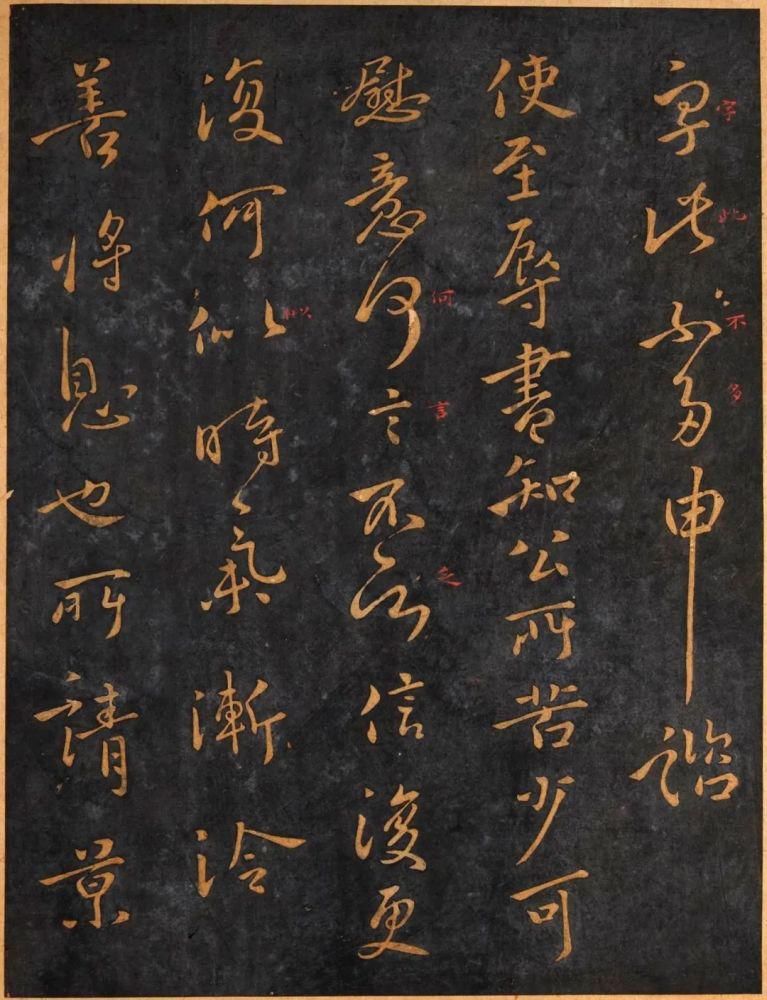 字此不多申諮
字此不多
使至辱書知公所苦少可
慰意何言不信後更
何言
復何似時氣漸冷
似
善將息也所請景